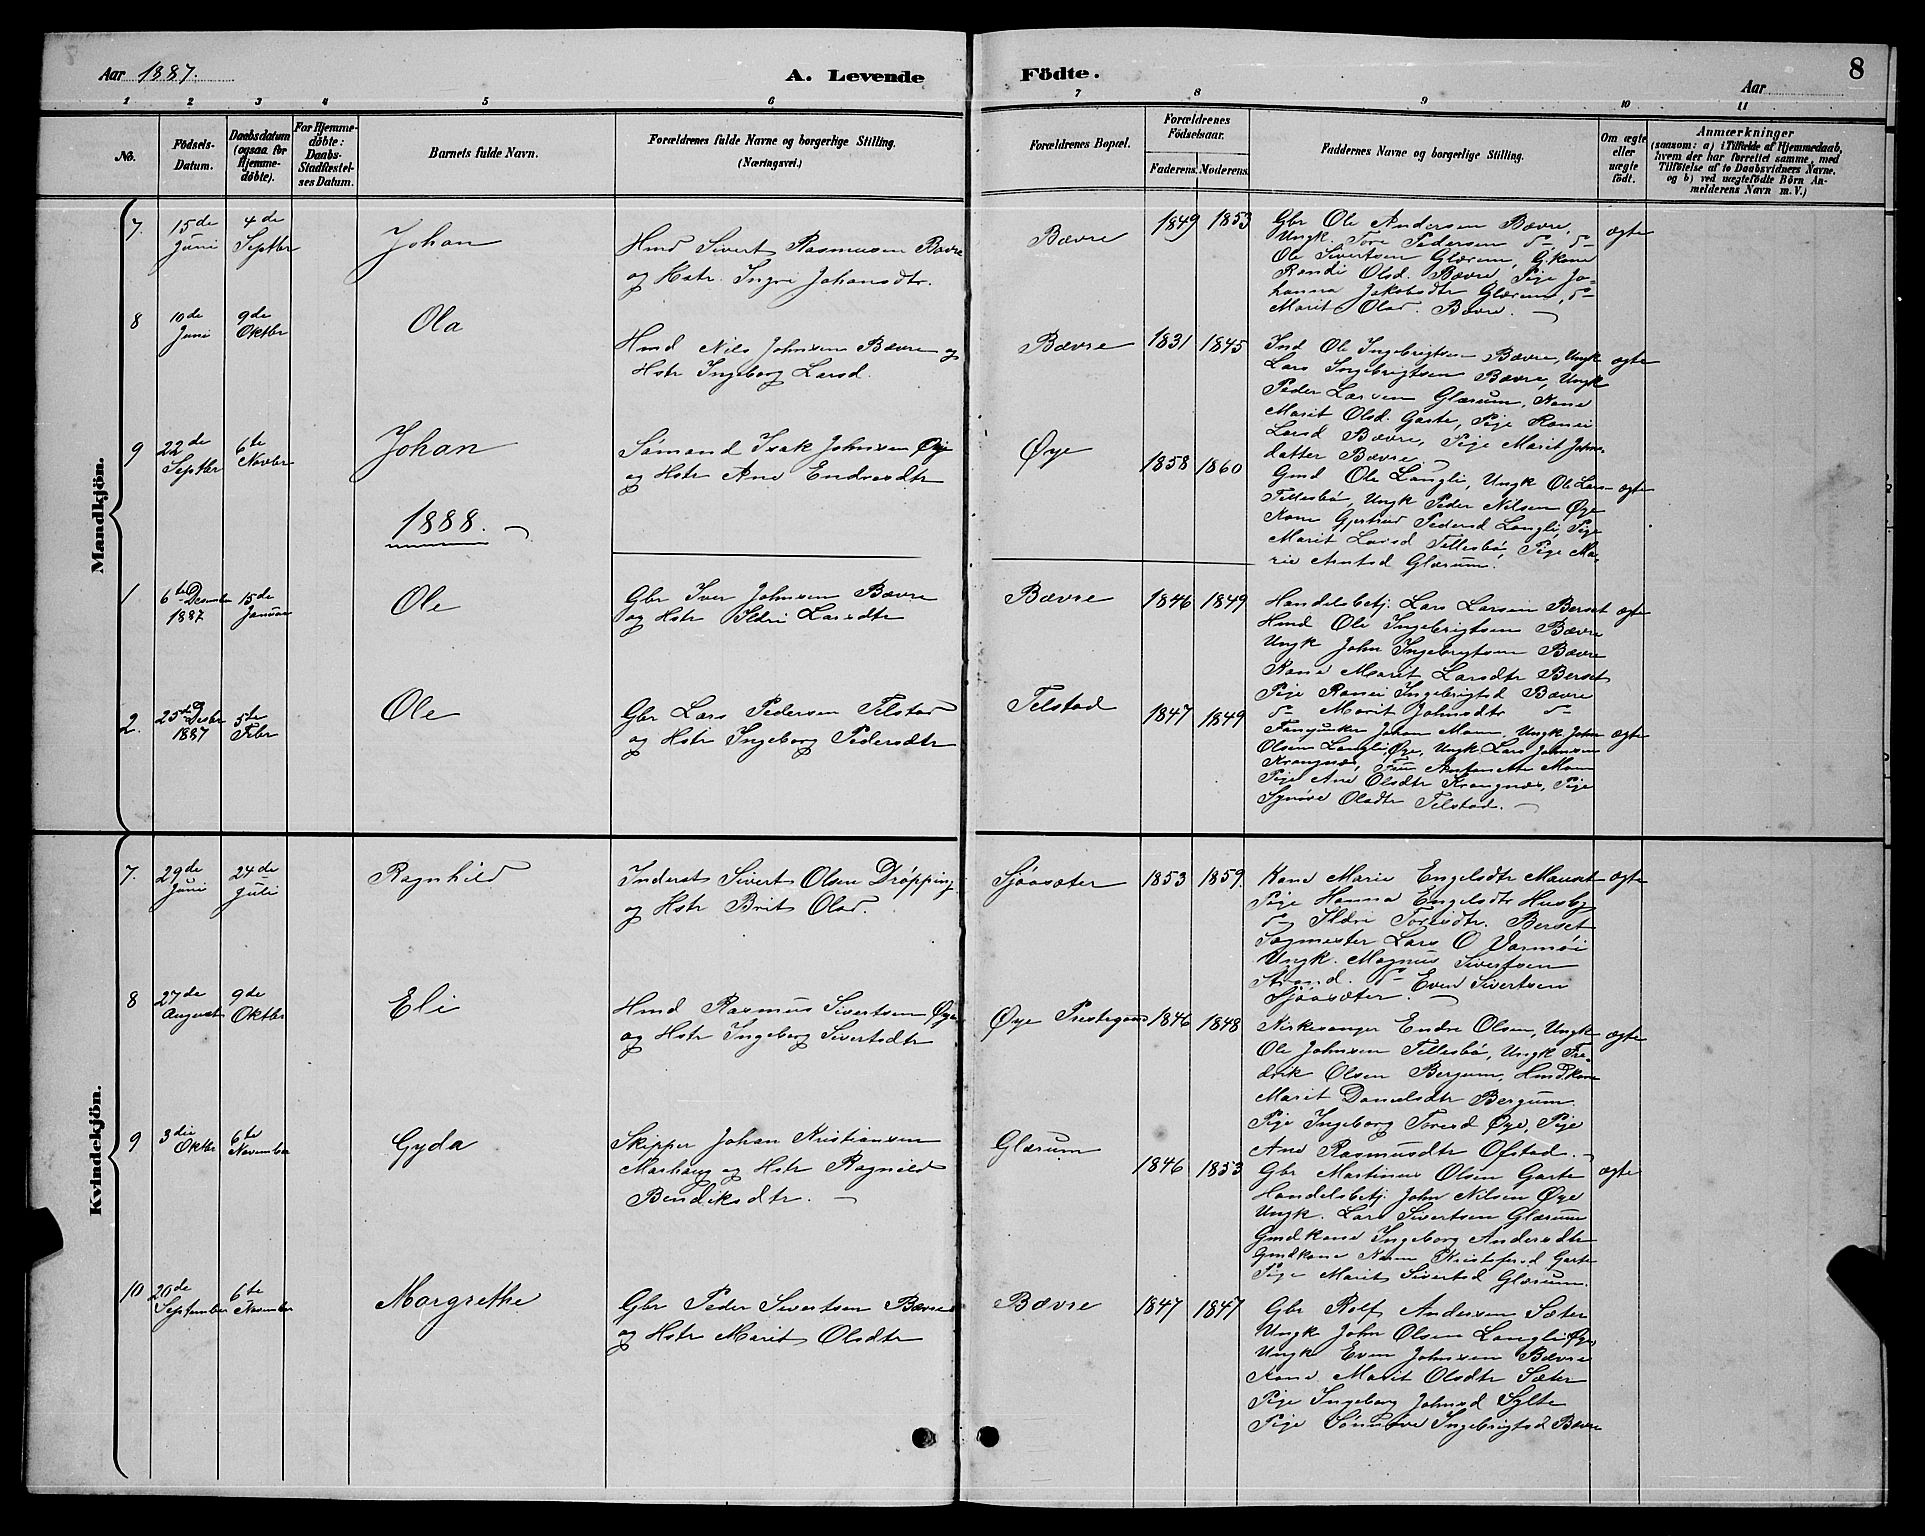 8
Aar 1887.
A. Levende Födte.
Aar
1 2 3 4 5 6 7 8 9 10 11
No.
Födsels-
Datum.
Daabsdatum
(ogsaa for
Hjemme-
döbte).
For Hjemme-
döbte:
Daabs-
Stadfæstel-
ses Datum.
Barnets fulde Navn.
Forældrenes fulde Navne og borgerlige Stilling.
(Næringsvei.)
Forældrenes Bopæl.
Forældrenes
Födselsaar.
Faderens. Moderens.
Faddernes Navne og borgerlige Stilling.
Om ægte
eller
uægte
födt.
Anmærkninger
(saasom: a) i Tilfælde af Hjemmedaab,
hvem der har forrettet samme, med
Tilföielse af to Daabsvidners Navne,
og b) ved uægtefödte Börn An-
melderens Navn m. V.)
Mandkjön.
7. 15de Juni
4de Septbr
Johan
Hmd Sivert Rasmusen Bævre
og Hstr. Ingri Johansdtr.
Bævre
1849 1853
Gbr Ole Andersen Bævre,
Ungk. Tore Pedersen do, do
Ole Sivertsen Glærem, Gkone
Randi Olsd. Bævre, Pige Jo-
hanna Jakobsdtr Glærum, do
Marit Olsd. Bævre.
ægte
8 10de Juni
9de Oktbr
Ola
Hmd Nils Johnsen Bævre og
Hstr Ingeborg Larsd.
Bævre
1831 1845
Ind Ole Ingebrigtsen Bævre, Ungk
Lars Ingebrigtsen Bævre, Ungk
Peder Larsen Glærum, Kone
Marit Olsd. Garte, Pige Ranei
Larsd Bævre, Pige Marit Johns-
datter Bævre
ægte
9 22de Septbr
6te Novbr
Johan
Sømand Isak Johnsen Øye
og Hstr Ane Endresdtr
Øye
1858 1860
Gmd Ole Langli, Ungk Ole Lars-
Tellesbø, Ungk Peder Nilsen Øye
Kone Gjertrud Pedersd Langli, Pige
Marit Larsd Tellesbø, Pige Ma-
rie Arntsd Glærum.
ægte
1888.
1 6te Desember 1887
15de Januar
Ole
Gbr Iver Johnsen Bævre
og Hstr Ildri Larsdtr
Bævre
1846 1849
Handelsbetj. Lars Larsen Berset
Hmd Ole Ingebrigtsen Bævre
Ungk John Ingebrigtsen Bævre
Kone Marit Larsdtr Berset
Pige Ranei Ingebrigtsd Bævre
do Marit Johnsdtr do
ægte
2. 25de Desbr 1887
5te Febr
Ole
Gbr Lars Pedersen Telstad
og Hstr Ingeborg Pedersdtr
Telstad
1847 1849
Johan Moan, Ungk John
Olsen Langli, Øye, Ungk Lars Johnsen
Krangnæs, Fru Antonette Moan
Pige Ane Olsdtr Krangnæs, Pige
Synøve Olsdtr Telstad.
ægte
Kvindekjön.
7. 29de Juni
24de Juli
Ragnhild
Inderst Sivert Olsen Drøpping
og Hstr Brit Olsd.
Sjöasæter
1853 1859.
Kone Marie Engelsdtr Mauset
Pige Hanna Engelsdtr Husby
do Ildri Toresdtr. Berset
Sagmester Lars O Varmøi
Ungk. Magnus Sivertsen
Strand. do Even Sivertsen
Sjöasæter.
ægte
8 27de August
9de Oktbr
Eli
Hmd Rasmus Sivertsen Øye
og Hstr Ingeborg Sivertsdtr
Øye Prestegaard
1846 1848
Kirkesanger Endre Olsen, Ungk
Ole Johnsen Tellesbø, Ungk Fre-
drik Olsen Bergum, Hmdkone
Marit Danielsdtr Bergum.
Pige Ingeborg Toresd Øye, Pige
Ane Rasmusdtr Ofstad.
ægte
9 3die Oktbr
6te November
Gyda
Skipper Johan Kristiansen
Marhaug og Hstr Ragnild
Bendiksdtr.
Glærum
1846 1853
Gbr Martinus Olsen Garte
Handelsbetj. John Nilsen Øye
Ungk. Lars Sivertsen Glærum
Gmdkone Ingeborg Andersdtr
Gmdkone Karen Kristofersd Garte
Pige Marit Sivertsd Glærum.
ægte
10 20de September
6te November
Margrethe
Gbr Peder Sivertsen Bævre
og Hstr Marit Olsdtr
Bævre
1847 1847
Gbr Rolf Andersen Sæter
Ungk John Olsen Langli, Øye,
Ungk Even Johnsen Bævre
Kone Marit Olsdtr Sæter
Pige Ingeborg Johnsd Sylte
Pige Synnøve Ingebrigtsd Bævre